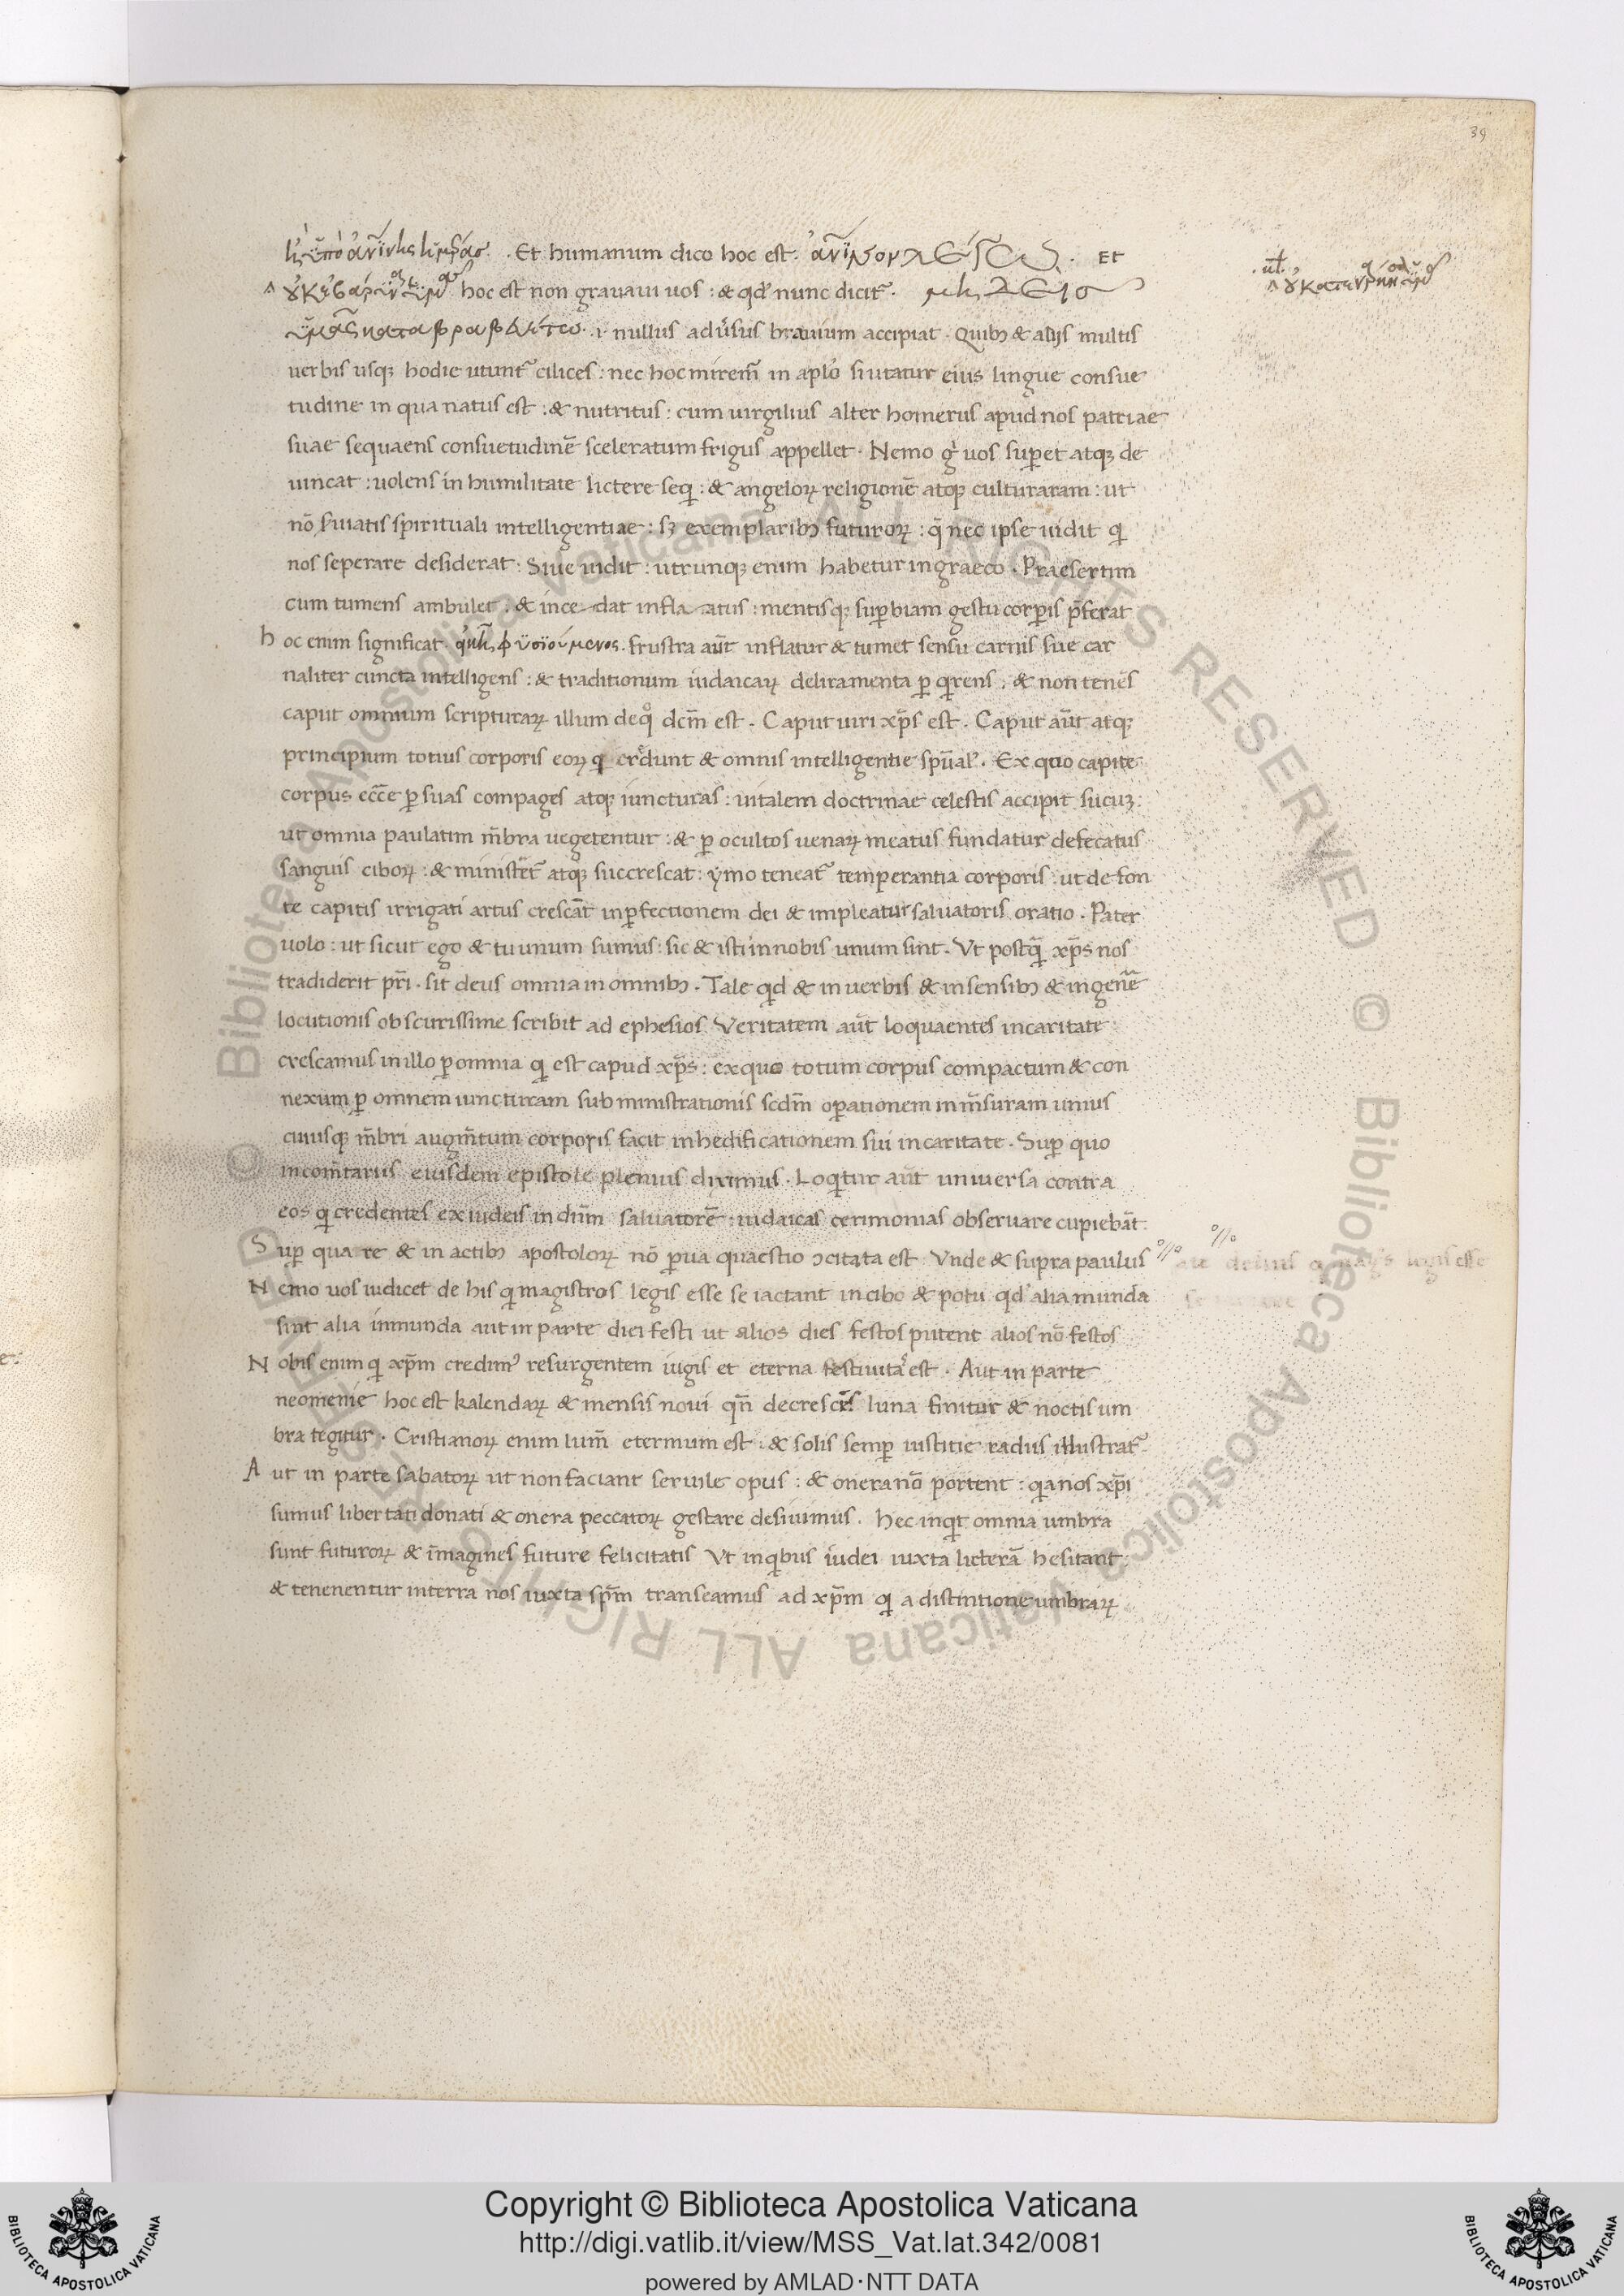 39
. Et humanum dico hoc est. Et
hoc est non grauaui uos : & qd' nunc dicit᷑ .
.i. nullus aduersus brauium accipiat . Quibꝫ & alijs multis
uerbis usqꝫ hodie utunt᷑ cilices : nec hoc mirem̃ in aplo si utatur eius lingue consue
tudine in qua natus est : & nutritus : cum uirgilius alter homerus apud nos patriae
suae sequaens consuetudinē sceleratum frigus appellet . Nemo gͦ uos superet atqꝫ de
uincat : uolens in humilitate lictere seqi : & angeloꝝ religionē atqꝫ culturaram : ut
nō suiatis spirituali intelligentiae : sꝫ exemplaribꝫ futuroꝝ : q̄ nec ipse uidit qi
nos seperare desiderat : Siue uidit : utrunqꝫ enim habetur in graeco . Praesertim
cum tumens ambulet . & ince dat infla atus : mentisqꝫ suꝑbiam gestu corꝑis p̄ferat
hoc enim significat . φυσϊούμενος . frustra aūt inflatur & tumet sensu carnis sue car
naliter cuncta intelligens : & traditionum iudaicaꝝ deliramenta ꝑ qirens . & non tenēs
caput omnium scripturaꝝ illum deqͦ dcm̄ est . Caput uiri xp̄s est . Caput aūt atqꝫ
principium totius corporis eoꝝ qi credunt & omnis intelligentie spūal' . Ex quo capite
corpus ecc̄e ꝑ suas compages atqꝫ iuncturas : uitalem doctrinae celestis accipit sucuꝫ :
ut omnia paulatim m̄bra uegetentur : & ꝑ ocultos uenaꝝ meatus fundatur defecatus
sanguis ciboꝝ : & ministret᷑ atqꝫ succrescat : ymo teneat᷑ temperantia corporis : ut de fon
te capitis irrigati artus crescāt inꝑfectionem dei & impleatur saluatoris oratio . Pater
uolo : ut sicut ego & tu unum sumus : sic & isti in nobis unum sint . Vt postq̄ xp̄s nos
tradiderit pr̄i . sit deus omnia in omnibꝫ . Tale qid & in uerbis & in sensibꝫ & in genēe
locutionis obscurissime scribit ad ephesios Veritatem aūt loquaentes in caritate :
crescamus in illo ꝑ omnia qi est capud xp̄s : ex quo totum corpus compactum & con
nexum ꝑ omnem iuncturam sub ministrationis scdm̄ oꝑationem in m̄suram unius
cuiusqꝫ m̄bri augm̄tum corporis facit inhedificationem sui in caritate . Suꝑ quo
in com̄tarius eiusdem epistole plenius diximus . Loqitur aūt uniuersa contra
eos qi credentes ex iudeis in dn̄m saluatorē : iudaicas cerimonias obseruare cupiebāt :
Suꝑ qua re & in actibꝫ apostoloꝝ nō ꝑua quaestio ɔcitata est Vnde & supra paulus
Nemo uos iudicet de his qi magistros legis esse se iactant in cibo & potu qd' alia munda
sint alia inmunda aut in parte diei festi ut alios dies festos putent alios nō festos
Nobis enim qi xp̄m credim᷒ resurgentem iugis et eterna festiuitas est . Aut in parte
neomenie hoc est kalendaꝝ & mensis noui qn̄ decrescēs luna finitur & noctis um
bra tegitur . Cristianoꝝ enim lum̄ eternum est . & solis semꝑ iustitie radiis illustrat᷑
Aut in parte sabatoꝝ ut non faciant seruile opus : & onera nō portent : qia nos xp̄i
sumus libertati donati & onera peccatoꝝ gestare desiuimus . hec inqit omnia umbra
sunt futuroꝝ & īmagines future felicitatis Vt in qibus iudei iuxta licterā hesitant :
& tenenentur in terra nos iuxta sp̄m transeamus ad xp̄m qi a distintione umbraꝝ
Copyright © Biblioteca Apostolica Vaticana
http://digi.vatlib.it/view/MSS_Vat.lat.342/0081
powered by AMLAD·NTT DATA